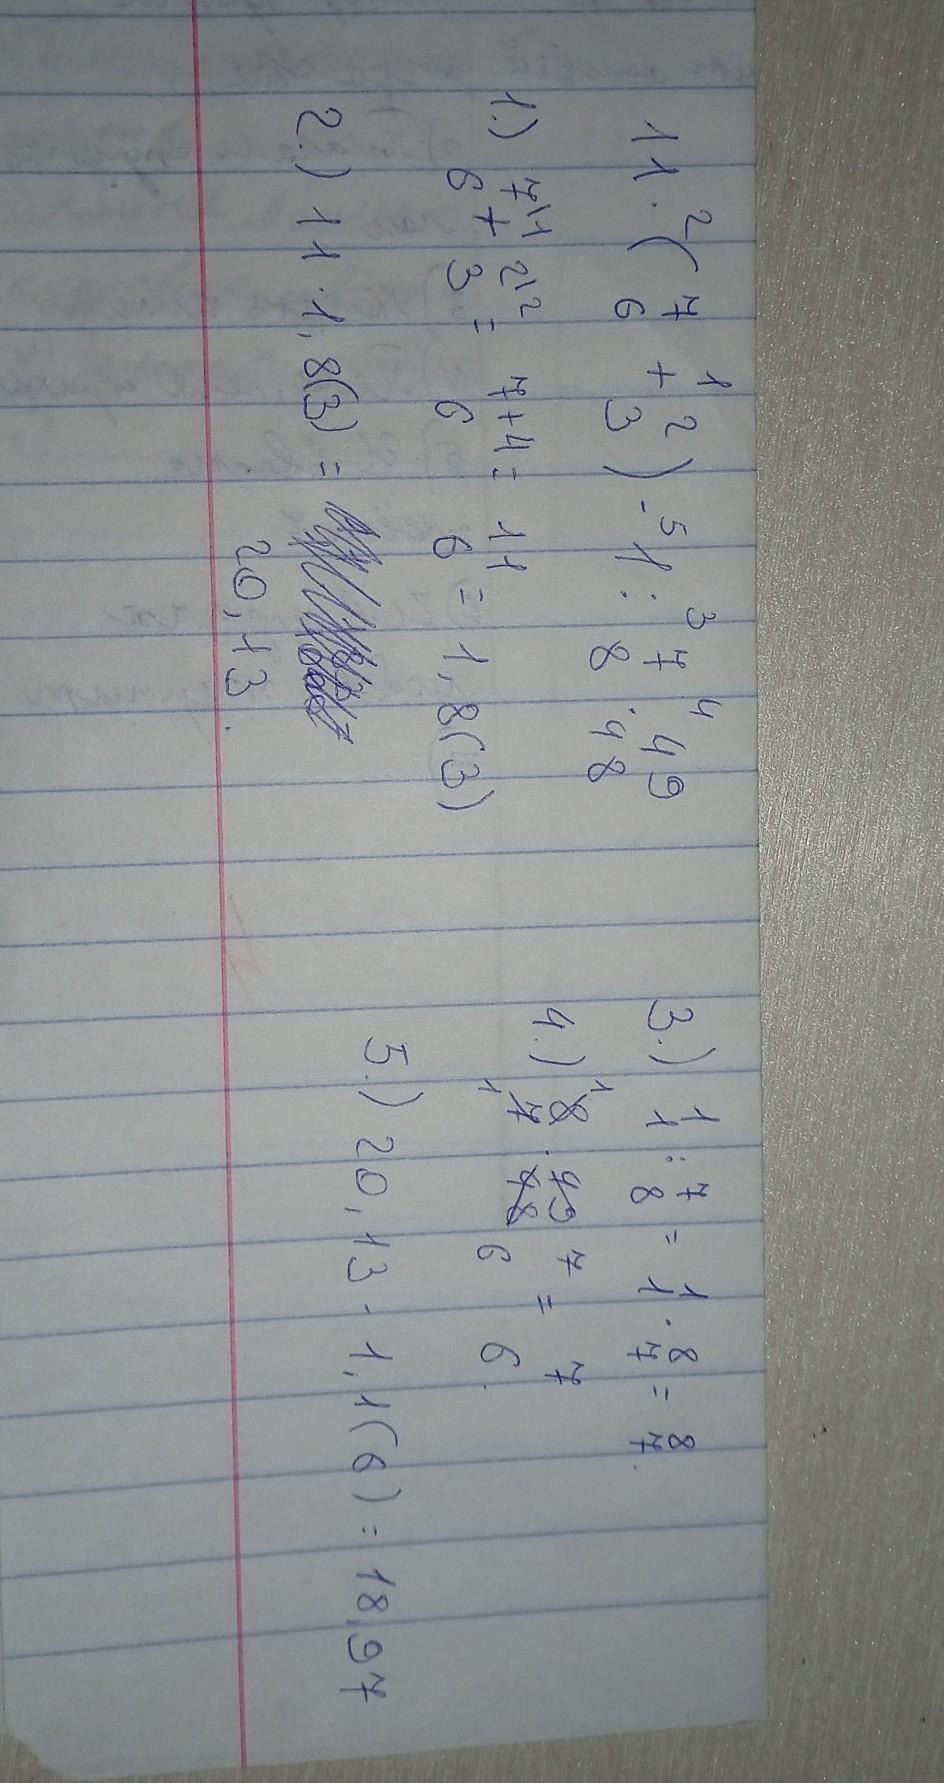 11 · ( 7/6 + 2/3 ) - 1 : 7/8 · 49/48
2 1 5 3 4
1.) 7\1/6 + 2\2/3 = 7+4/6 = 11/6 = 1,8(3)
2.) 11 · 1,8(3) =
20,13.
3.) 1/1 : 7/8 = 1/1 · 8/7 = 8/7.
4.) 1 8/7 1 · 49/48 7/6 = 7/6.
5.) 20,13 - 1,1(6) = 18,97